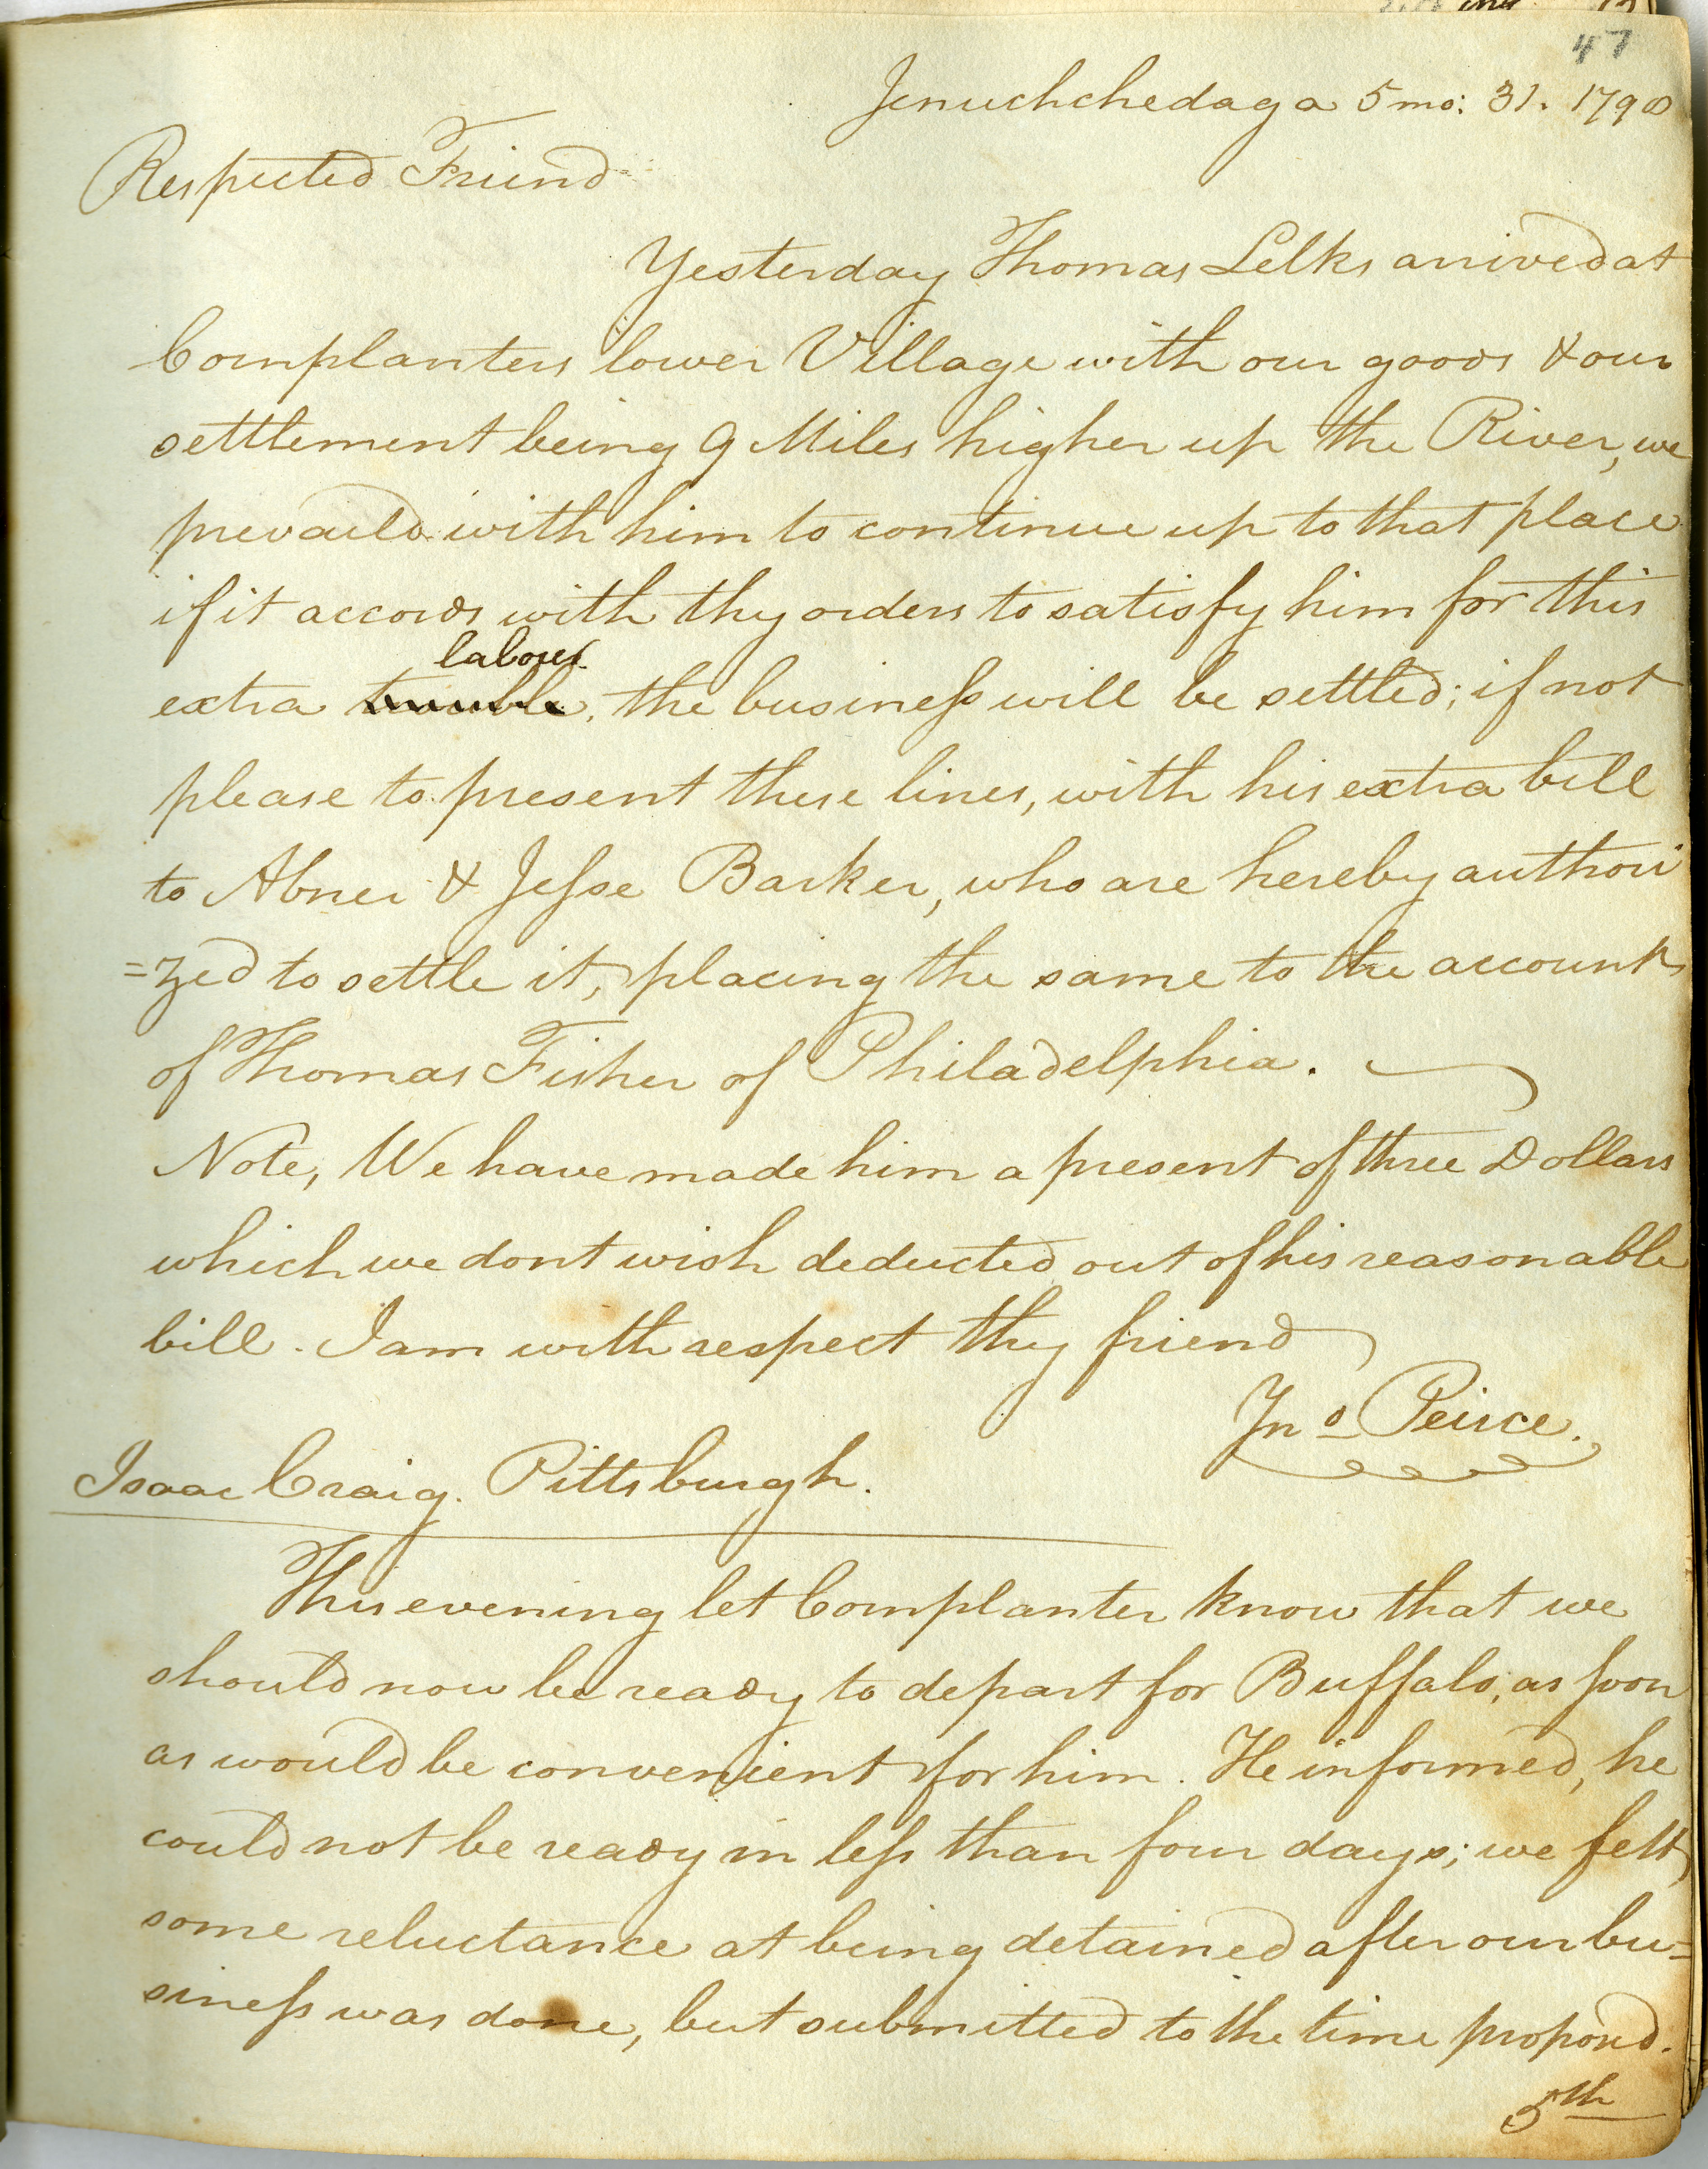 47
Jenuchchedaga 5 mo: 31. 1798
Respected Friend
Yesterday Thomas Lelks arived at
Cornplanters lower Village with our goods & our
settlement being 9 Miles higher up the River, we
prevaild with him to continue up to that place
if it accords with thy orders to satisfy him for this
labour
extra trouble, the business will be settled; if not
please to present these lines, with his extra bill
to Abner & Jesse Barker, who are hereby authori
=zed to settle it, placing the same to the accounts
of Thomas Fisher of Philadelphia.
Note, We have made him a present of three Dollars
which we dont wish deducted out of his reasonable
bill. I am with respect thy friend
Jno Peirce.
Isaac Craig. Pittsburgh.
This evening let Cornplanter know that we
should now be ready to depart for Buffalo, as soon
as would be convenient for him. He informed, he
could not be ready in less than four days; we felt
some reluctance at being detained after our bu=
siness was done, but submitted to the time propos'd.
5th